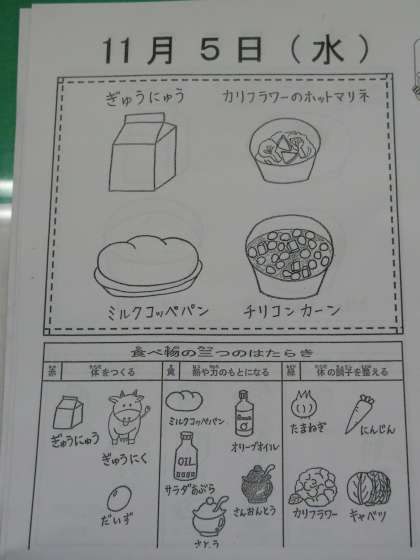 11月5日(水)
ぎゅうにゅう
カリフラワーのホットマリネ
ミルクコッペパン
チリコンカーン
食べ物の三つのはたらき
赤 体をつくる
黄 熱や力のもとになる
緑 体の調子を整える
ぎゅうにゅう
ぎゅうにく
だいず
ミルクコッペパン
オリーブオイル
OIL
サラダあぶら
さんおんとう
さとう
たまねぎ
にんじん
カリフラワー
キャベツ